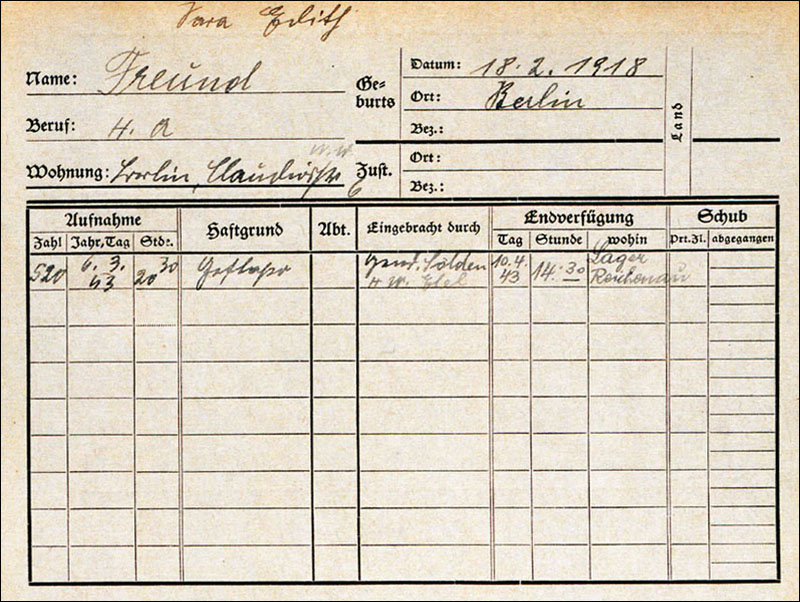 Sara Edith
Name: Freund
Beruf: H. A
Wohnung: Berlin, Claudiusstr 6
Ge=
burts
Datum: 18. 2. 1918
Ort: Berlin
Bez.:
Zust.
Ort:
Bez.:
Land
Aufnahme Haftgrund Abt. Eingebracht durch Endverfügung Schub
Zahl Jahr, Tag Stde. Tag Stunde wohin Prt.Zl. abgegangen
520 6. 3. 43 20 30 Gestapo Gend. Sölden 10. 4. 43 14 30 Lager Reichenau